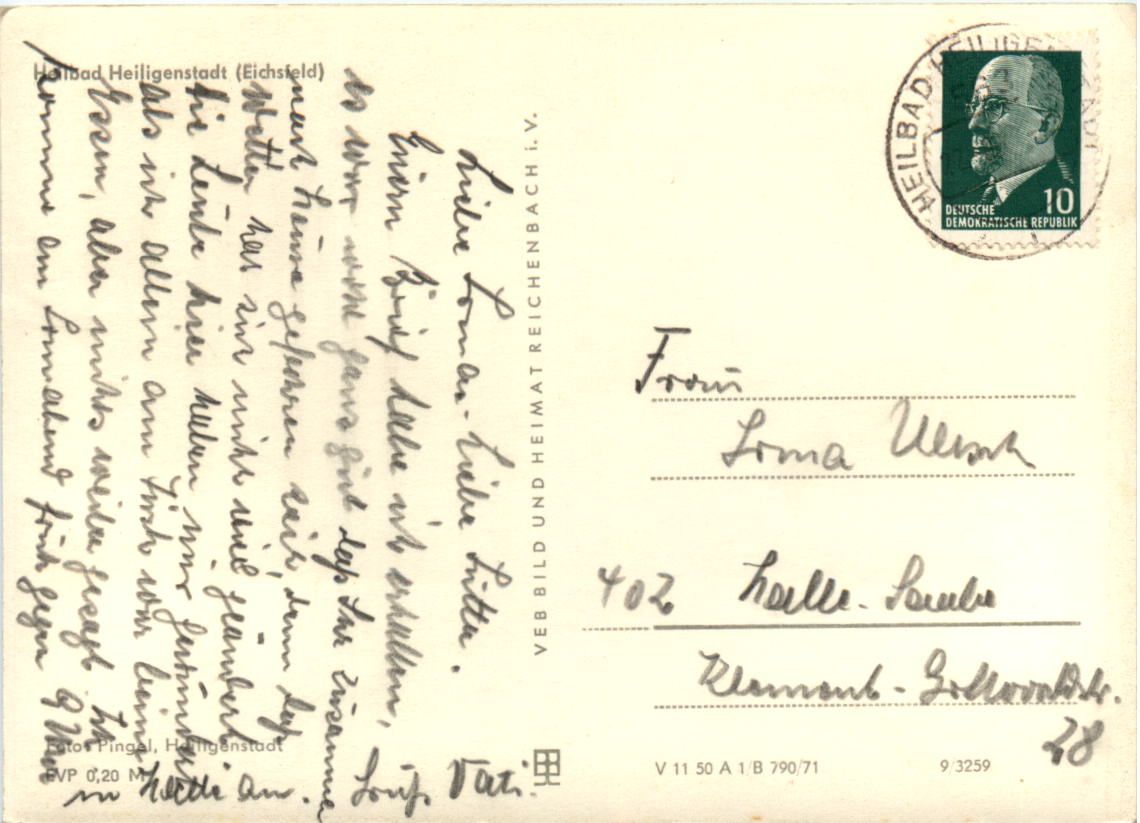 Heilbad Heiligenstadt (Eichsfeld)
Liebe Lona - Liebe Lütte.
Euern Brief habe ich erhalten,
es war ganz gut daß Ihr zusammen
nach Hause gefahren seit, denn daß
Wetter hat sich nicht viel geändert
die Leute hier haben nur gestaunt
als ich allein am Tisch war beim
Essen, aber nichts weiter gesagt. Ich
komme am Sonnabend früh gegen 9 Uhr
in Halle an. Gruß Vati.
Foto: Pingel, Heiligenstadt
EVP 0,20 M
VEB BILD UND HEIMAT REICHENBACH i. V.
HEILBAD HEILIGENSTADT
10
DEUTSCHE
DEMOKRATISCHE REPUBLIK
Frau
Lona
402 Halle - Saale
Klement - Gottwaldstr.
28
V 11 50 A 1/B 790/71 9/3259